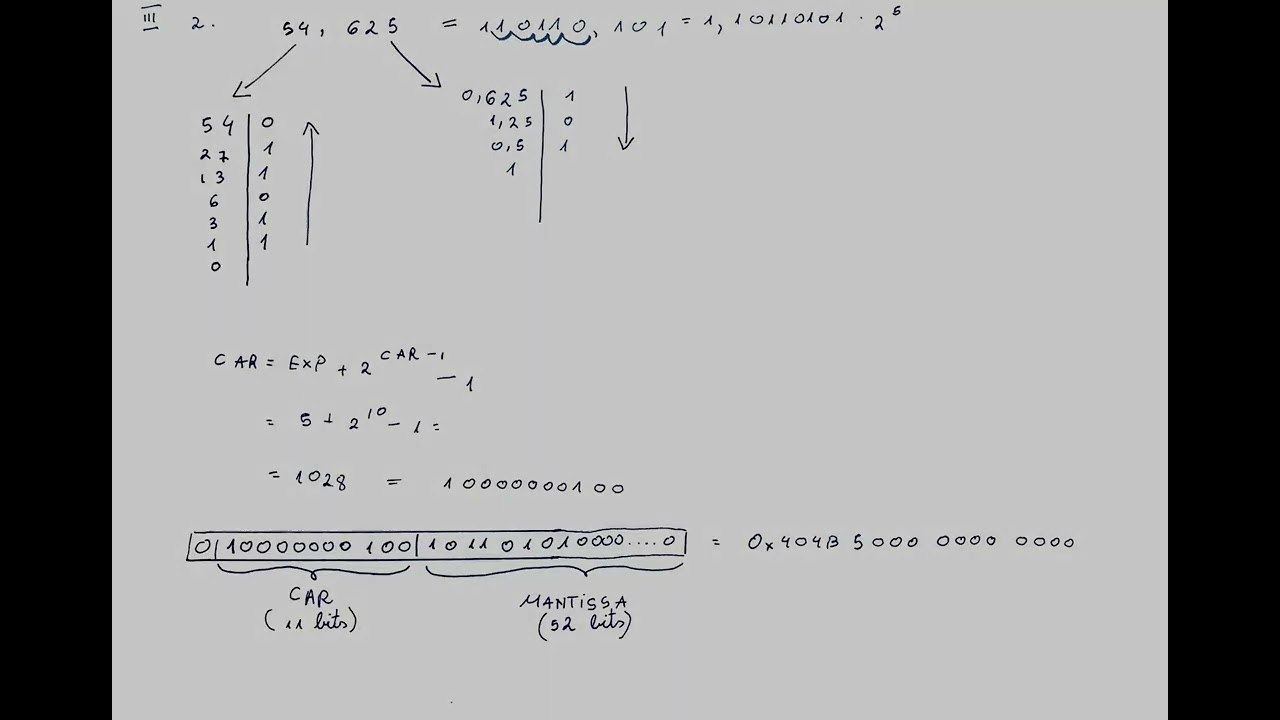 III 2. 54,625 = 110110,101 = 1,10110101 · 2^5
54 | 0
27 | 1
13 | 1
6 | 0
3 | 1
1 | 1
0
0,625 | 1
1,25 | 0
0,5 | 1
1
CAR = EXP + 2^CAR-1 - 1
= 5 + 2^10 - 1 =
= 1028 = 10000000100
0|10000000 100|1 0 11 0 1 0 1 0 0000....0 = 0x404B 5000 0000 0000
CAR
(11 bits)
MANTISSA
(52 bits)